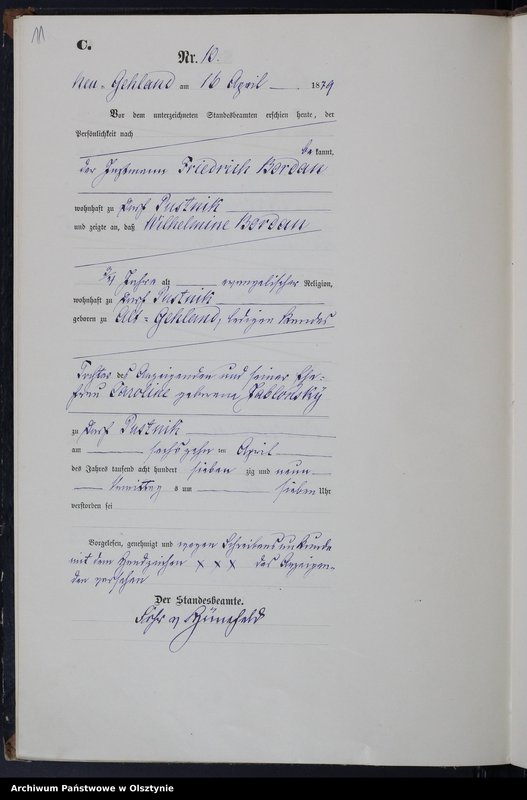 11
C.
Nr. 10.
Neu-Gehland am 16 April 1879
Vor dem unterzeichneten Standesbeamten erschien heute, der
Persönlichkeit nach
be kannt,
der Instmann Friedrich Bordan
wohnhaft zu Dorf Pustnik
und zeigte an, daß Wilhelmine Bordan
Jahre alt evangelischer Religion,
wohnhaft zu Dorf Pustnik
geboren zu Alt-Gehland, ledigen Standes
Tochter des Anzeigenden und seiner Ehe-
frau Caroline geborene Jablonsky
zu Dorf Pustnik
am sechszehn ten April
des Jahres tausend acht hundert sieben zig und neun
Vormittags um sieben Uhr
verstorben sei
Vorgelesen, genehmigt und wegen Schreibensunkunde
mit dem Handzeichen x x x des Anzeigen-
den versehen
Der Standesbeamte.
Archiwum Państwowe w Olsztynie